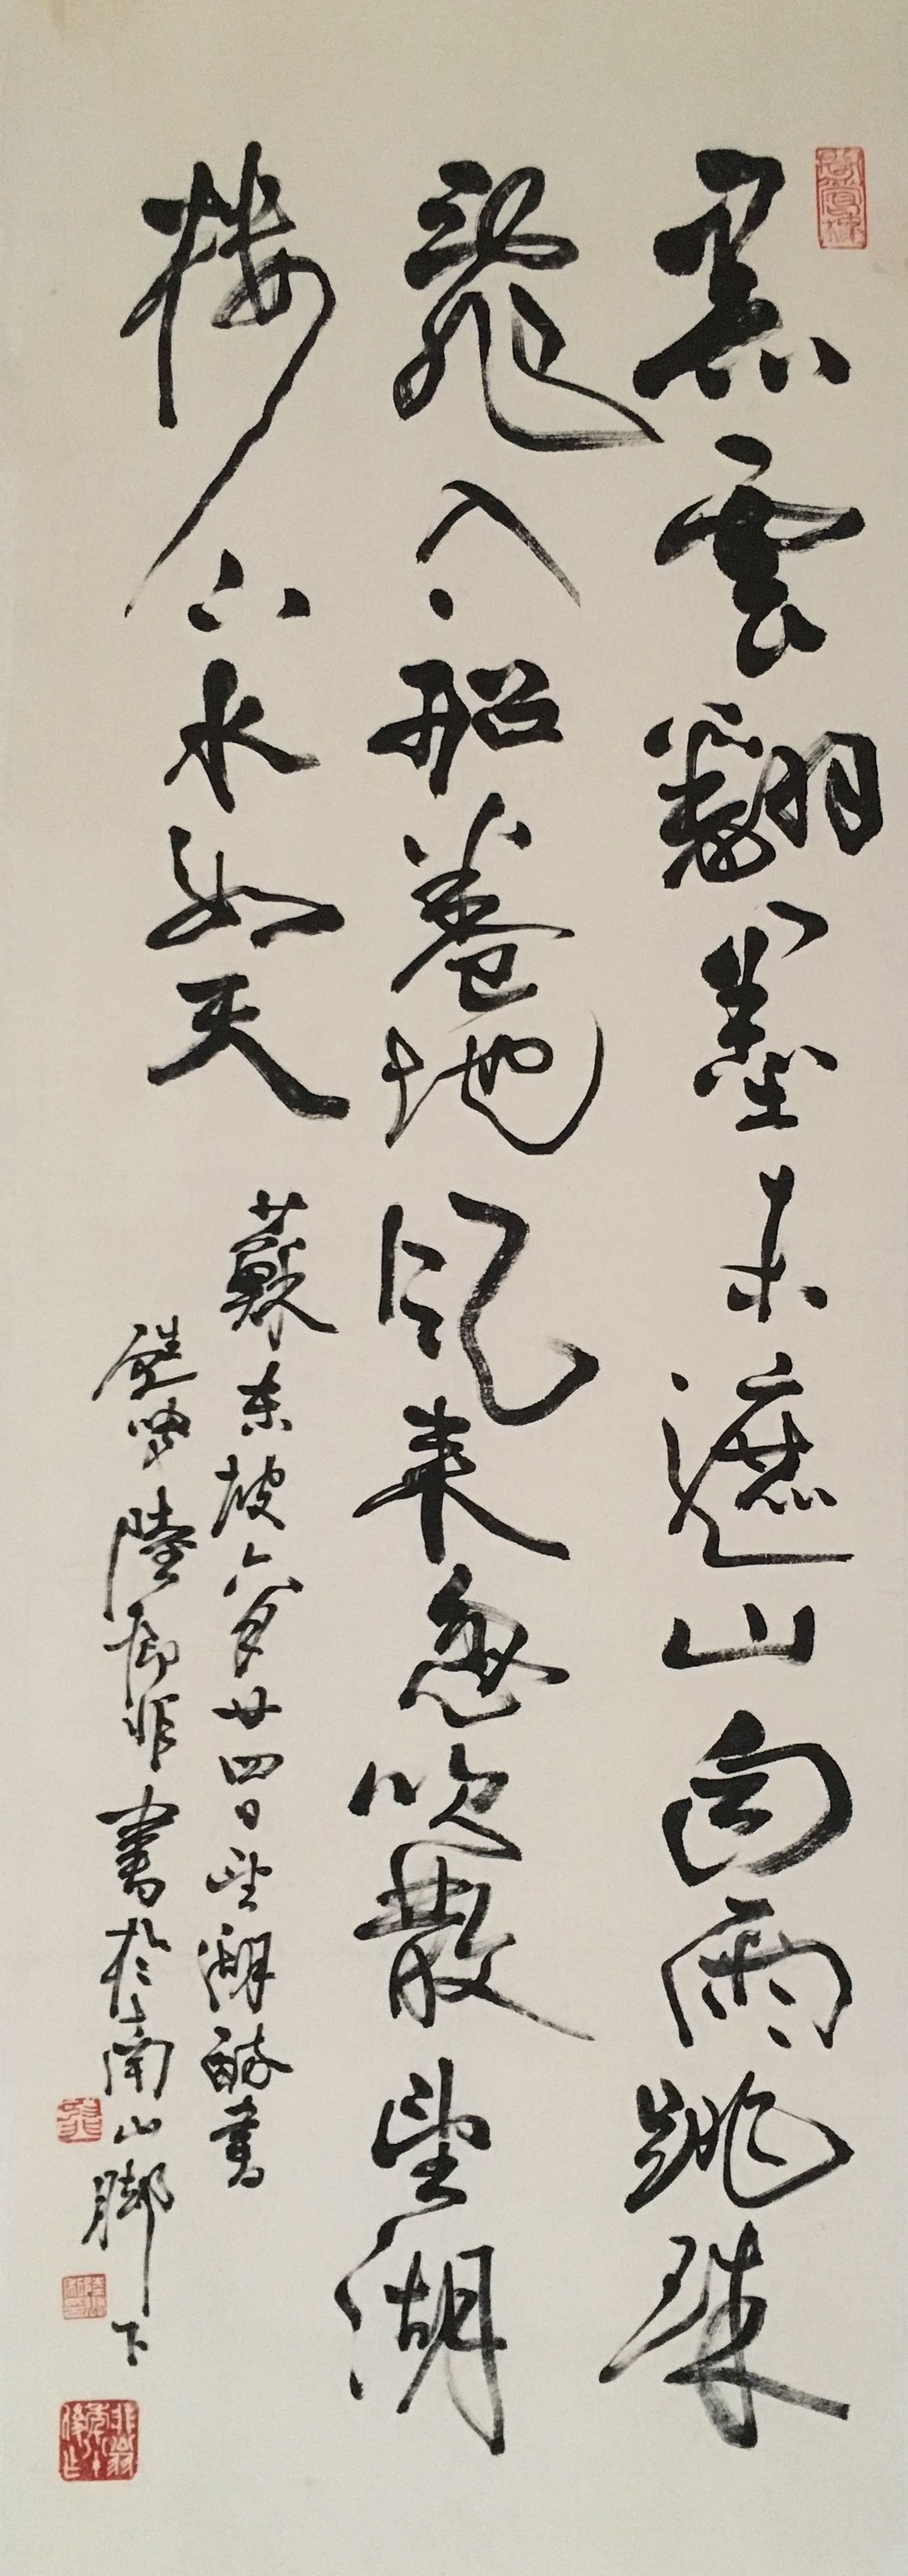 黑雲翻墨未遮山白雨跳珠
亂入船卷地風來忽吹散望湖
樓下水如天
蘇東坡六月廿四日望湖醉書
甦叟陸抑非書於南山脚下